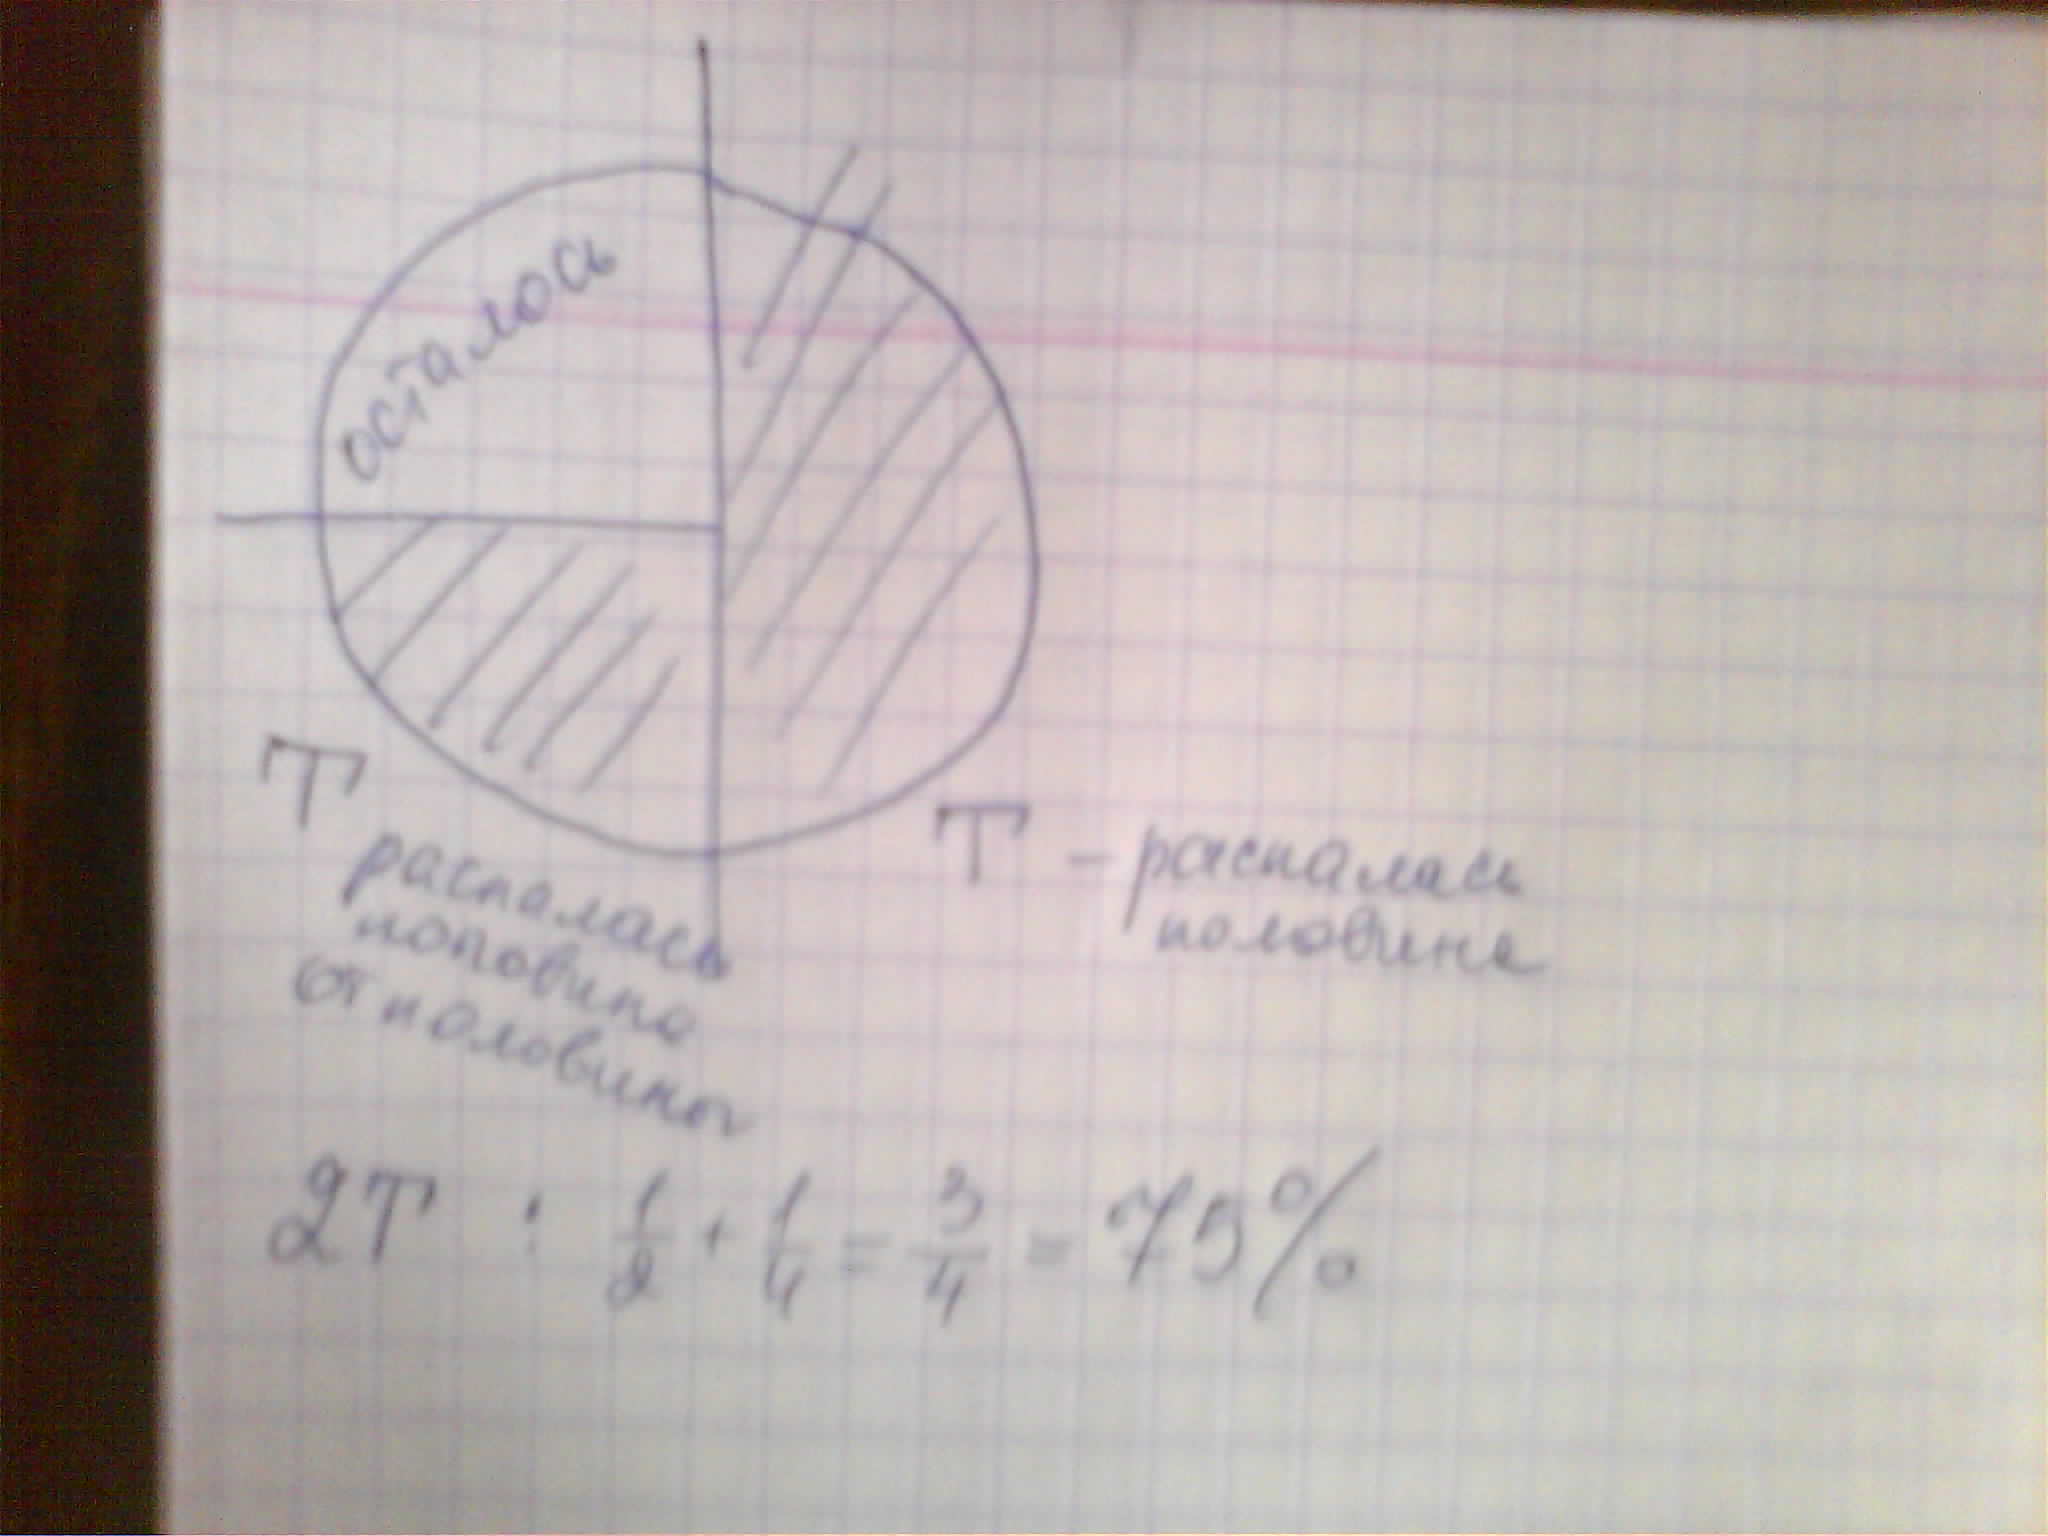 осталось
Т
распалась
половина
от половины
Т - распалась
половина
2Т : 1/2 + 1/4 = 3/4 = 75%